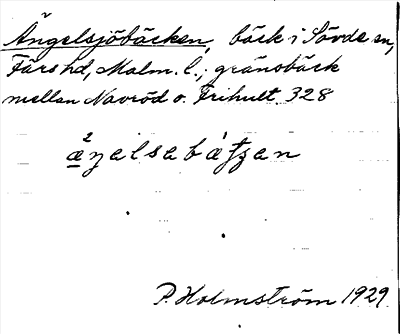 Ängelsjöbäcken, bäck i Sövde sn,
Färs hd, Malm. l.; gränsbäck
mellan Navröd o. Frihult. 328
2æŋelsebàtʃen
P. Holmström 1929.